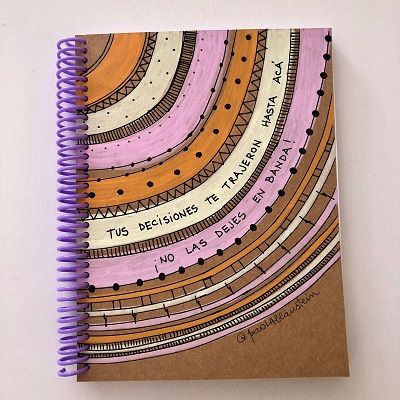 TUS DECISIONES TE TRAJERON HASTA ACÁ
¡NO LAS DEJES EN BANDA!
@paolablaustein